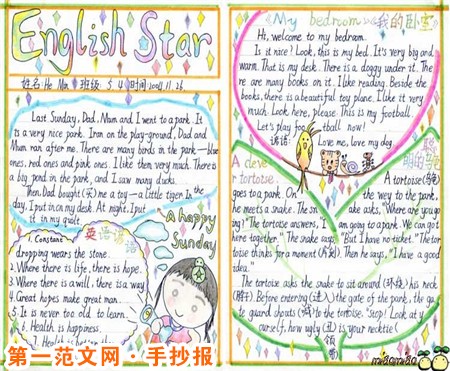 English Star
姓名: He Min 班级 5.4 时间 2004.11.26
Last Sunday, Dad, Mum and I went to a park. It
is a very nice park. I run on the play-ground, Dad and
Mum ran after me. There are many birds in the park — blue
ones, red ones and pink ones. I like them very much. There is
a big pond in the park, and I saw many ducks.
Then Dad bought (买) me a toy — a little tiger. In the
day, I put it in my desk. At night, I put
it in my quilt.
A happy
Sunday
英语谚语
1. Constant
dropping wears the stone.
2. Where there is life, there is hope.
3. Where there is a will, there is a way
4. Great hopes make great man.
5. It is never too old to learn.
6. Health is happiness.
My bedroom 我的卧室
Hi, welcome to my bedroom.
Is it nice? Look, this is my bed. It's very big and
warm. That is my desk. There is a doggy under it. The
re are many books on it. I like reading. Beside the
books, there is a beautiful toy plane. I like it very
much. Look here, please. This is my football.
Let's play football now!
谚语: Love me, love my dog.
A clever
tortoise
聪明的龟
A tortoise (乌龟)
goes to a park. On the way to the park,
he meets a snake. The snake asks, "Where are you go
ing?" The tortoise answers, "I am going to a park. We can go t
here together." The snake says, "But I have no ticket." The tor
toise thinks for a moment (片刻). Then he says, "I have a good
idea."
The tortoise asks the snake to sit around (环绕) his neck
(脖子). Before entering (进入) the gate of the park, the ga
te guard shouts (喊) to the tortoise. "Stop! Look at y
ourself, how ugly (丑) is your necktie (领带)!"
第一范文网·手抄报
miāo miāo